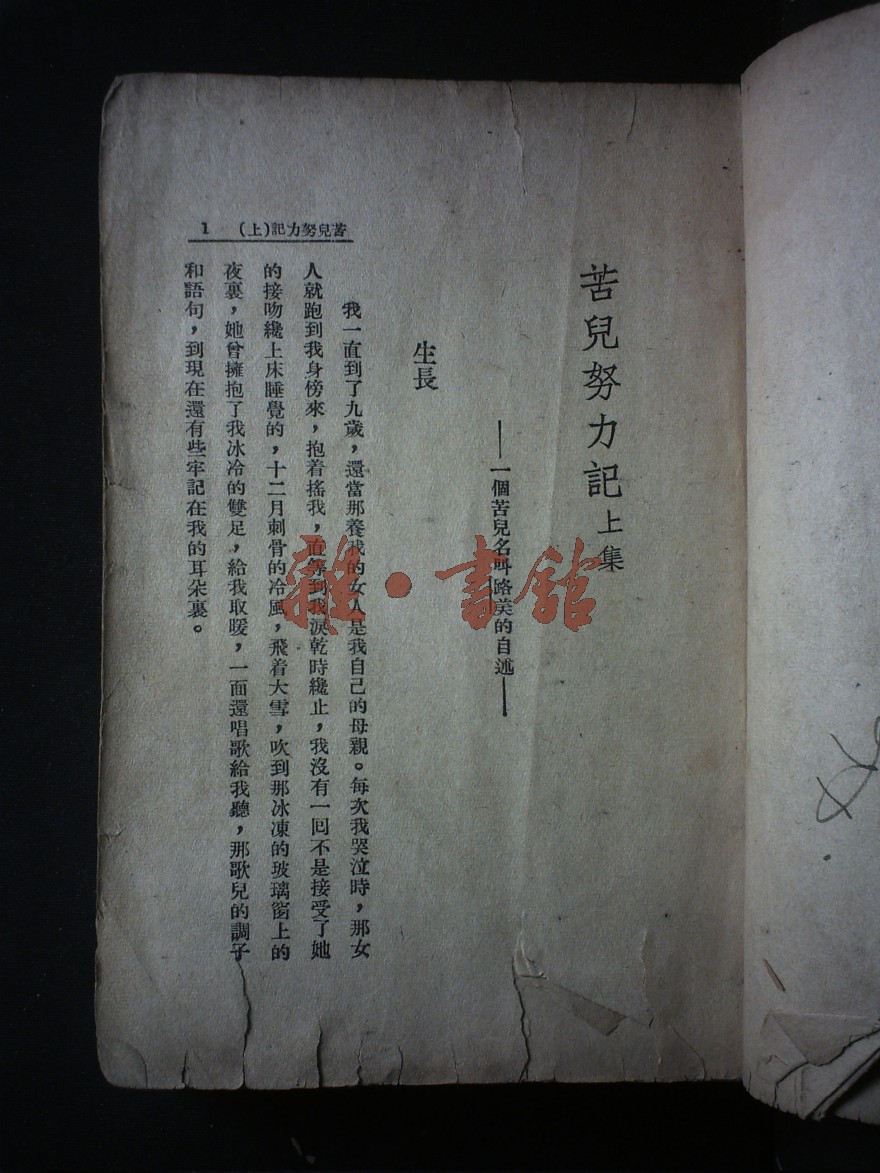 苦兒努力記上集
——一個苦兒名叫路美的自述——
生長
我一直到了九歲，還當那養我的女人是我自己的母親。每次我哭泣時，那女
人就跑到我身傍來，抱着搖我，直等到我淚乾時纔止，我沒有一回不是接受了她
的接吻纔上床睡覺的，十二月刺骨的冷風，飛着大雪，吹到那冰凍的玻璃窗上的
夜裏，她曾擁抱了我冰冷的雙足，給我取暖，一面還唱歌給我聽，那歌兒的調子
和語句，到現在還有些牢記在我的耳朵裏。
苦兒努力記(上) 1
雜·書館